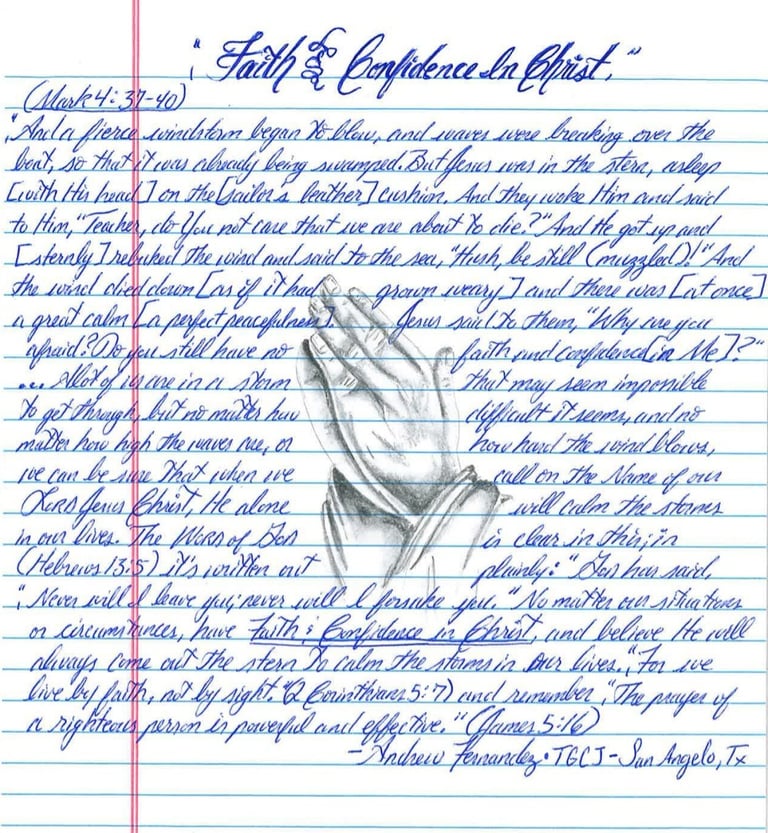 "Faith & Confidence In Christ."
(Mark 4:37-40)
"And a fierce windstorm began to blow, and waves were breaking over the
boat, so that it was already being swamped. But Jesus was in the stern, asleep
[with His head] on the [sailor's leather] cushion. And they woke Him and said
to Him, "Teacher, do You not care that we are about to die?" And He got up and
[sternly] rebuked the wind and said to the sea, "Hush, be still (muzzled)!" And
the wind died down [as if it had grown weary] and there was [at once]
a great calm [a perfect peacefulness]. Jesus said to them, "Why are you
afraid? Do you still have no faith and confidence [in Me]?"
... Alot of us are in a storm that may seem impossible
to get through, but no matter how difficult it seems, and no
matter how high the waves are, or how hard the wind blows,
we can be sure that when we call on the Name of our
Lord Jesus Christ, He alone will calm the storms
in our lives. The Word of God is clear in this; in
(Hebrews 13:5) it's written out plainly: "God has said,
"Never will I leave you; never will I forsake you." No matter our situations
or circumstances, have Faith & Confidence in Christ, and believe He will
always come out the stern to calm the storms in our lives. "For we
live by faith, not by sight." (2 Corinthians 5:7) and remember, "The prayer of
a righteous person is powerful and effective." (James 5:16)
-Andrew Fernandez • TGCJ - San Angelo, Tx